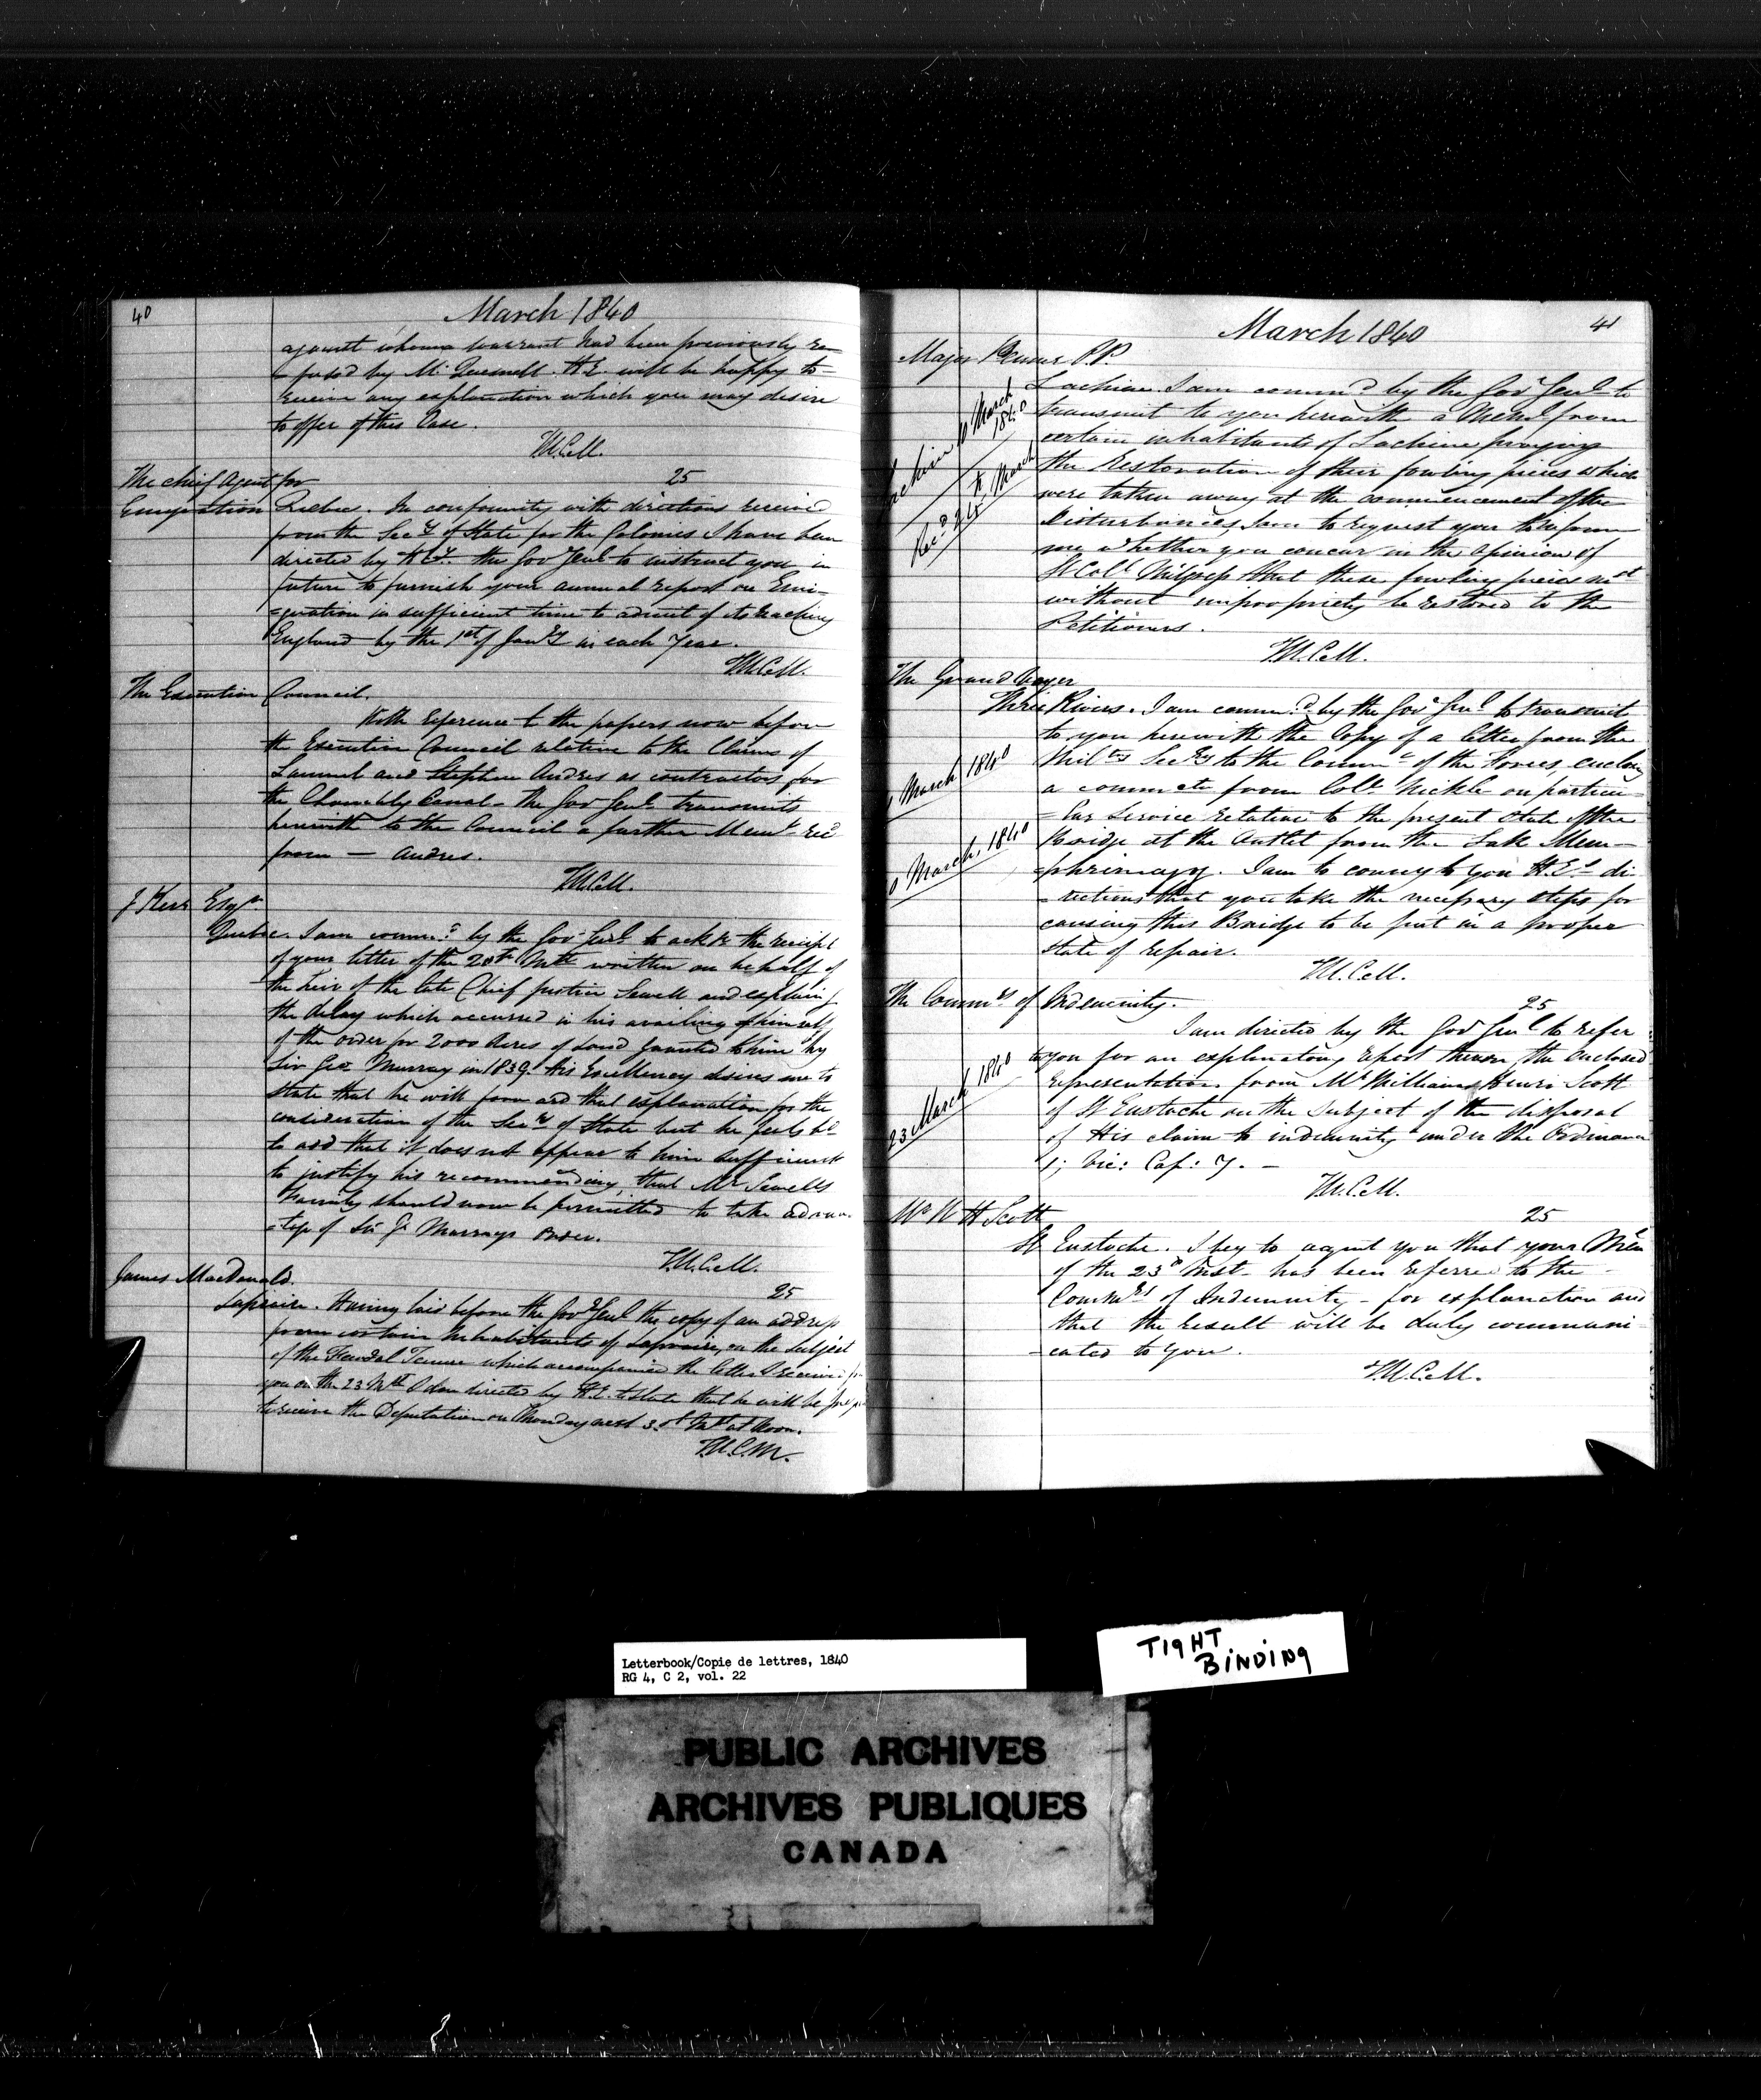 40
March 1840
against whom a warrant had been previously re=
=fused by Mr Quesnell. H.E. will be happy to
receive any explanation which you may desire
to offer of this Case.
T.W.C.M.
The chief Agent for
25
Emigration
Quebec. In conformity with directions received
from the Secy of State for the Colonies I have been
directed by H.Ey. the Gov Genl to instruct you in
future to furnish your annual report on Emi=
=gration in sufficient time to admit of its reaching
England by the 1st of Jany in each Year.
T.W.C.M.
The Executive Council.
With reference to the papers now before
the Executive Council relative to the Claims of
Samuel and Stephen Andres as contractors for
the Chambly Canal - the Gov Genl transmits
herewith to the Council a further Meml recd
from — Andres.
T.W.C.M.
J Kerr Esqr.
Quebec. I am commd by the Gov Genl to ack the receipt
of your letter of the 20th Inst written on behalf of
the heir of the late Chief Justice Sewell and explaing
the delay which occurred in his availing of himself
of the order for 2000 Acres of Land granted to him by
Sir Geo. Murray in 1839. His Excellency desires me to
state that he will forward that explanation for the
consideration of the Secy of State but he feels bd
to add that it does not appear to him sufficient
to justify his recommending, that Mr Sewells
Family should now be permitted to take advan=
=tage of Sir G. Murrays order.
T.W.C.M.
James MacDonald.
25
Laprairie. Having laid before the Govr Genl the copy of an address
from certain Inhabitants of Laprairie, on the subject
of the Feudal Tenure which accompanied the letter I received
you on the 23 Inst I am directed by H.E. to state that he will be
to receive the Deputation on Monday next 30th Inst at Noon.
T.W.C.M.
41
March 1840
Major Penner P.P.
Lachine. I am commd by the Govr Genl to
transmit to you herewith a Meml from
certain inhabitants of Lachine praying
the Restoration of their fowling pieces which
were taken away at the commencement of the
Disturbances, I am to request you to inform
me whether you concur in the opinion of
Lt Coll Wilgress that these fowling pieces mt
without impropriety be restored to the
Petitioners.
T.W.C.M.
Lachine 10 March
1840
Recd 24th March
The Grand Voyer
Three Rivers. I am commd by the Govr Genl to transmit
to you herewith the Copy of a letter from the
Milty Secy to the Commr of the Forces, enclosg
a commctn from Coll Nickle on particu=
=lar Service relative to the present state of the
Bridge at the Outlet from the Lake Mem=
=phrimagog. I am to convey to you H.E.s di=
=rections that you take the necessary steps for
causing this Bridge to be put in a proper
state of repair.
T.W.C.M.
March 1840
March, 1840
The Commrs of Indemnity.
25
I am directed by the Gov Genl to refer
to you for an explanatory report thereon, the enclosed
representation from Mr William Henri Scott
of St Eustache on the subject of the disposal
of His claim to indemnity under the Ordinance
1; Vic: Cap: 7. —
T.W.C.M.
23 March 1840
Mr W H Scott
25
St Eustache. I beg to acqnt you that your Meml
of the 23d Inst - has been referred to the
Commrs of Indemnity - for explanation and
that the result will be duly communi=
=cated to you.
T.W.C.M.
Letterbook/Copie de lettres, 1840
RG 4, C 2, vol. 22
TIGHT
BINDING
PUBLIC ARCHIVES
ARCHIVES PUBLIQUES
CANADA